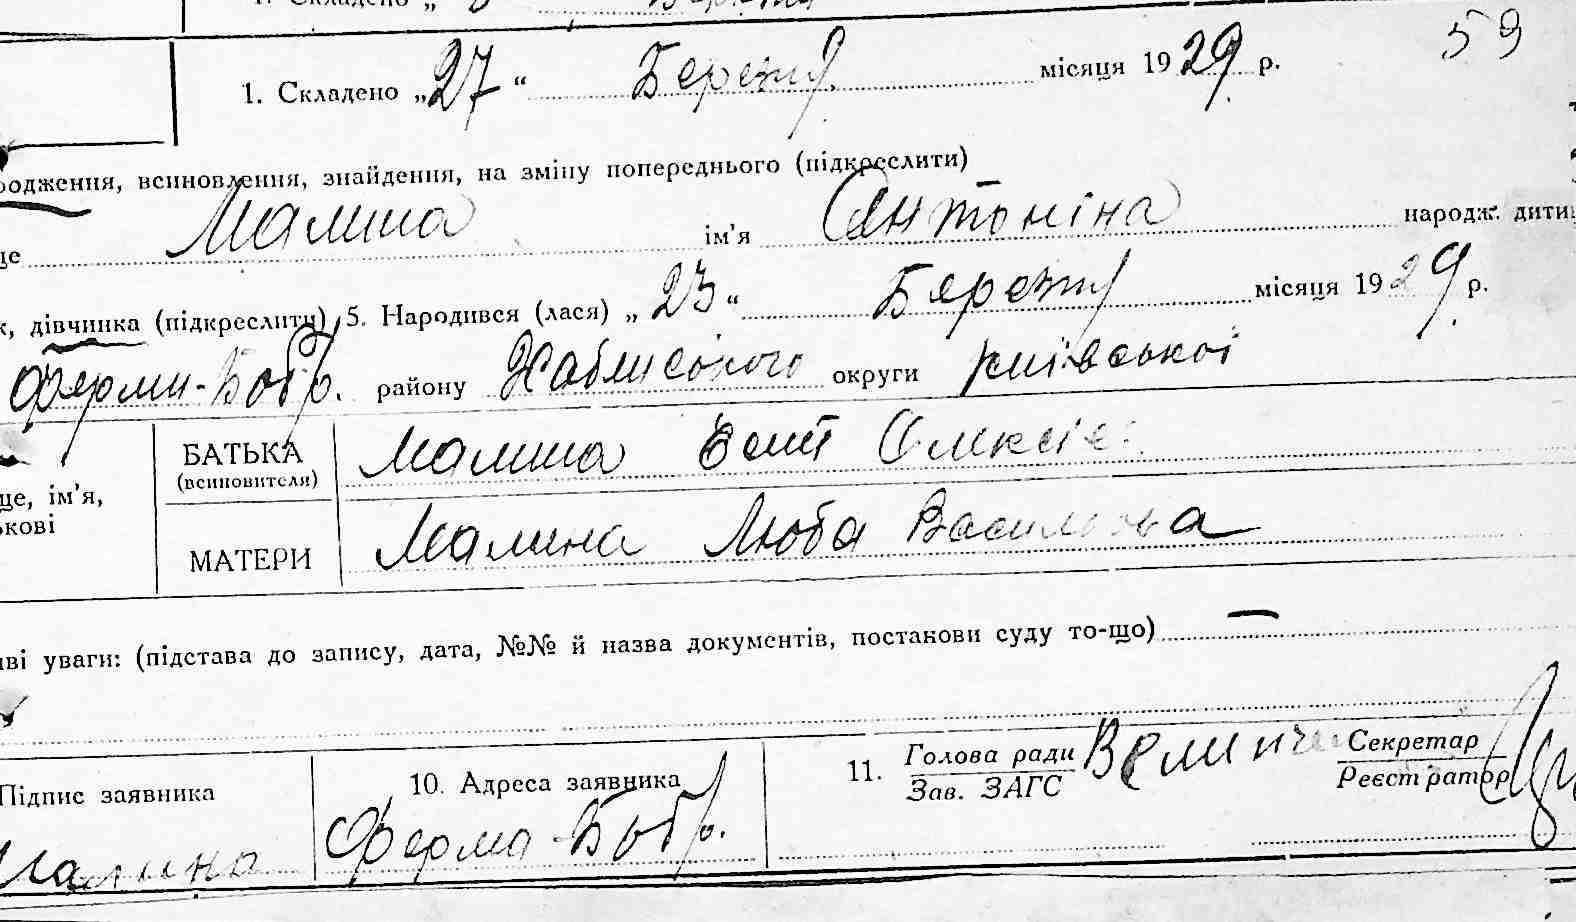 1. Складено „
59
1. Складено „27“ Березня місяця 1929 р.
родження, всиновлення, знайдення, на зміну попереднього (підкреслити)
ще Малина ім'я Антоніна народж. дити
к, дівчинка (підкреслити) 5. Народився (лася) „23“ Березня місяця 1929 р.
Ферми-Бобр. району округи київської
БАТЬКА Малина
(всиновителя)
ще, ім'я,
ькові
МАТЕРИ Малина Люба
ві уваги: (підстава до запису, дата, №№ й назва документів, постанови суду то-що) —
Підпис заявника 10. Адреса заявника 11. Голова ради Секретар
Зав. ЗАГС Реєстратор
Малина Ферма-Бобр.